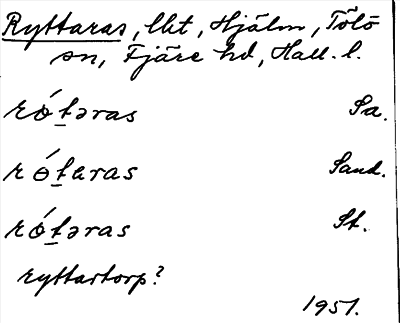 Ryttaras, lkt, Hjälm, Tölö
sn, Fjäre hd, Hall. l.
ró̱təras Sa.
rót̠aras Sand.
rót̠əras St.
ryttartorp?
1951.